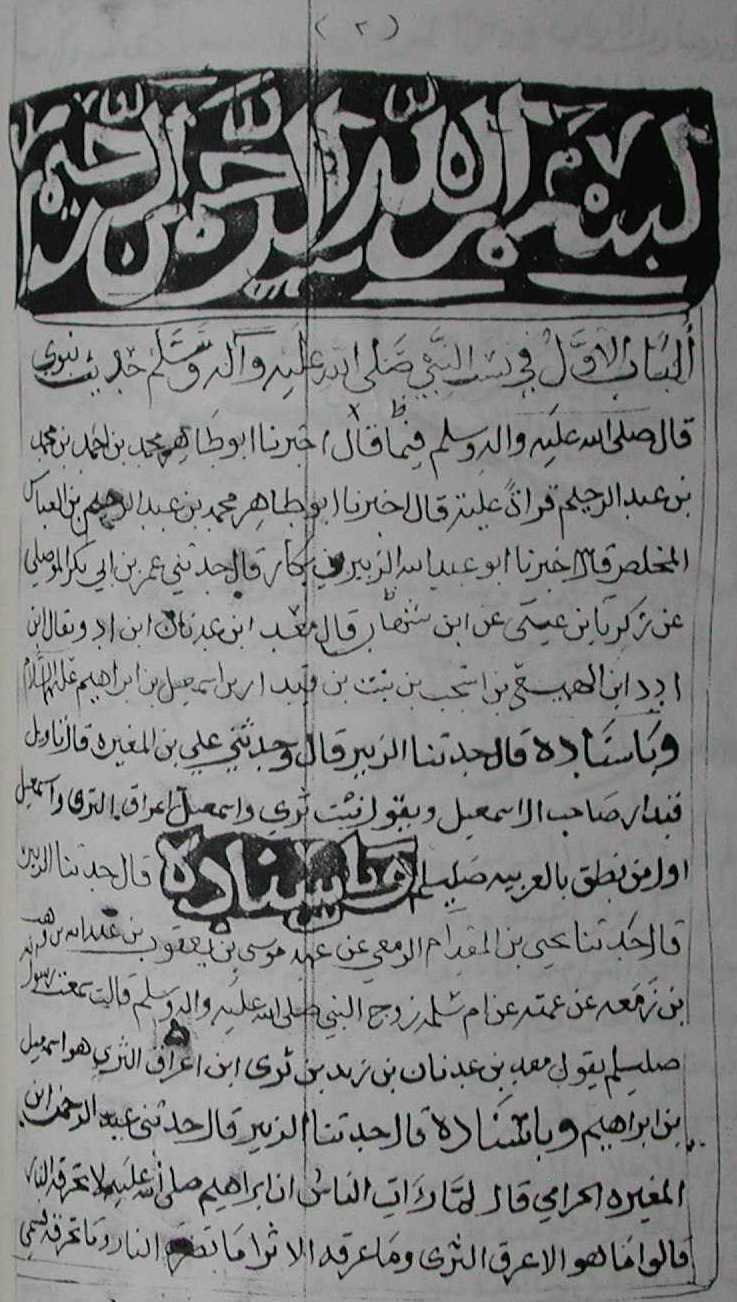 (٢)
بسم الله الرحمن الرحيم
ألباب الاول في نسب النبي صلى الله عليه وآله وسلم حديث نبوي
قال صلى الله عليه واله وسلم فيما قال اخبرنا ابو طاهر محمد بن احمد بن محمد
بن عبد الرحيم قراة عليه قال اخبرنا ابو طاهر محمد بن عبد الرحيم بن العباس
المخلص قال اخبرنا ابو عبد الله الزبير بن بكار قال حدثني عمر بن ابي بكر الموصلي
عن زكريا بن عيسى عن ابن شهاب قال معد ابن عدنان ابن اد ويقال ابن
ادد ابن الهميسع بن اشحب بن نبت بن قيدار بن اسمعيل بن ابراهيم عليهم السلام
وباسناده قال حدثنا الزبير قال وحدثني علي بن المغيره قال تاويل
قيدار صاحب الا اسمعيل ويقول نبت ثري واسمعيل اعراق الثرى واسمعيل
اول من نطق بالعربيه صلى الله عليه وسلم وباسناده قال حدثنا الزبير
قال حدثنا يحيى بن المقدام الزمعي عن عمه موسى بن يعقوب بن عبد الله بن وهب
بن زمعه عن عمته عن ام سلمه زوج النبي صلى الله عليه واله وسلم قالت سمعت رسول الله
صلیسلم يقول معد بن عدنان بن زيد بن ثرى ابن اعراق الثري هو اسمعيل
بن ابراهيم وباسناده قال حدثنا الزبير قال حدثني عبد الرحمن ابن
المغيره الحزامي قال لما رات الناس ان ابراهيم صلى الله عليه لا تحرقه النار
قالوا ما هو الا عرق الثرى وما عرقه الا ثرا ما تضره النار وما تحرقه فسمي